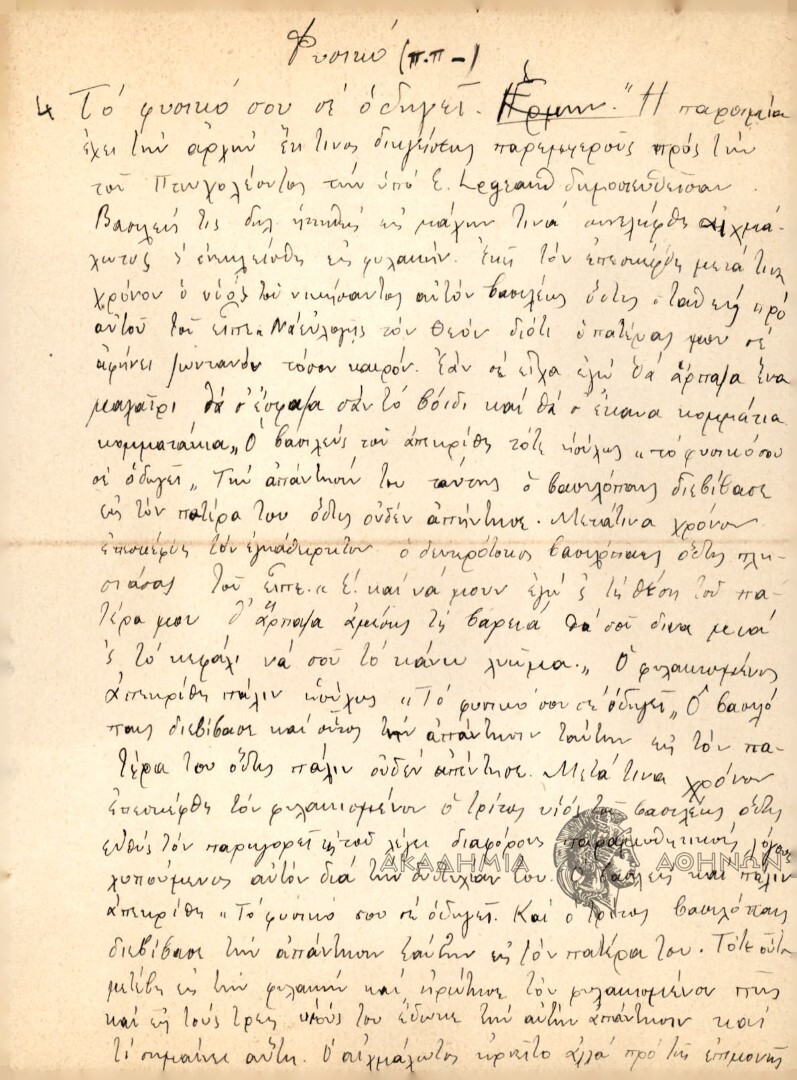 Φυσικό (π.π-)
4 Τό φυσικό σου σέ ὁδηγεῖ. Ἑρμην. "Ἡ παροιμία
ἔχει τήν ἀρχήν ἔκ τινος διηγήσεως παρεμφεροῦς πρός τήν
τοῦ Πτωχολέοντος τήν ὑπό E. Legrand δημοσιευθεῖσαν.
Βασιλεύς τις δηλ. ἡττηθείς εἰς μάχην τινά συνελήφθη αἰχμά-
λωτος & ἐνεκλείσθη εἰς φυλακήν. Ἐκεῖ τόν ἐπεσκέφθη μετά τινα
χρόνον ὁ υἱός τοῦ νικήσαντος αὐτόν βασιλέως ὅστις σταθείς πρό
αὐτοῦ τοῦ εἶπε "Νά εὐλογῇς τόν Θεόν διότι ὁ πατέρας μου σέ
ἀφήνει ζωντανόν τόσον καιρόν. Ἐάν σέ εἶχα ἐγώ θά ἅρπαζα ἕνα
μαχαῖρι θά σ' ἔσφαζα σάν τό βόιδι καί θά σ' ἔκανα κομμάτια
κομματάκια" Ὁ βασιλεύς τοῦ ἀπεκρίθη τότε ἡσύχως "τό φυσικό σου
σέ ὁδηγεῖ" Τήν ἀπάντησίν του ταύτην ὁ βασιλόπαις διεβίβασε
εἰς τόν πατέρα του ὅστις οὐδέν ἀπήντησε. Μετά τινα χρόνον
ἐπεσκέφθη τόν ἐγκάθειρκτον ὁ δευτερότοκος βασιλόπαις ὅστις πλη-
σιάσας τοῦ εἶπε. "Ἔ! καί νά μουν ἐγώ 'ς τή θέση τοῦ πα-
τέρα μου θ' ἅρπαζα ἀμέσως τή βαρειά θά σοῦ δινα μειά
'ς τό κεφάλι νά σοῦ τό κάνω λυῶμα." Ὁ φυλακισμένος
ἀπεκρίθη πάλιν ἡσύχως "Τό φυσικό σου σέ ὁδηγεῖ" Ὁ βασιλό
παις διεβίβασε καί οὗτος τήν ἀπάντησιν ταύτην εἰς τόν πα-
τέρα του ὅστις πάλιν οὐδέν ἀπήντησε. Μετά τινα χρόνον
ἐπεσκέφθη τόν φυλακισμένον ὁ τρίτος υἱός τοῦ βασιλέως ὅστις
εὐθύς τόν παρηγορεῖ καί τοῦ λέγει διαφόρους παραμυθητικούς λόγους
λυπούμενος αὐτόν διά τήν δυστυχίαν του. Ὁ βασιλεύς καί πάλιν
ἀπεκρίθη "Τό φυσικό σου σέ ὁδηγεῖ. Καί ὁ τρίτος βασιλόπαις
διεβίβασε τήν ἀπάντησιν ταύτην εἰς τόν πατέρα του. Τότε οὗτος
μετέβη εἰς τήν φυλακήν καί ἠρώτησε τόν φυλακισμένον πῶς
καί εἰς τούς τρεῖς υἱούς του ἔδωκε τήν αὐτήν ἀπάντησιν καί
τί σημαίνει αὕτη. Ὁ αἰχμάλωτος ἠρνεῖτο ἀλλά πρό τῆς ἐπιμονῆς
ΑΚΑΔΗΜΙΑ ΑΘΗΝΩΝ